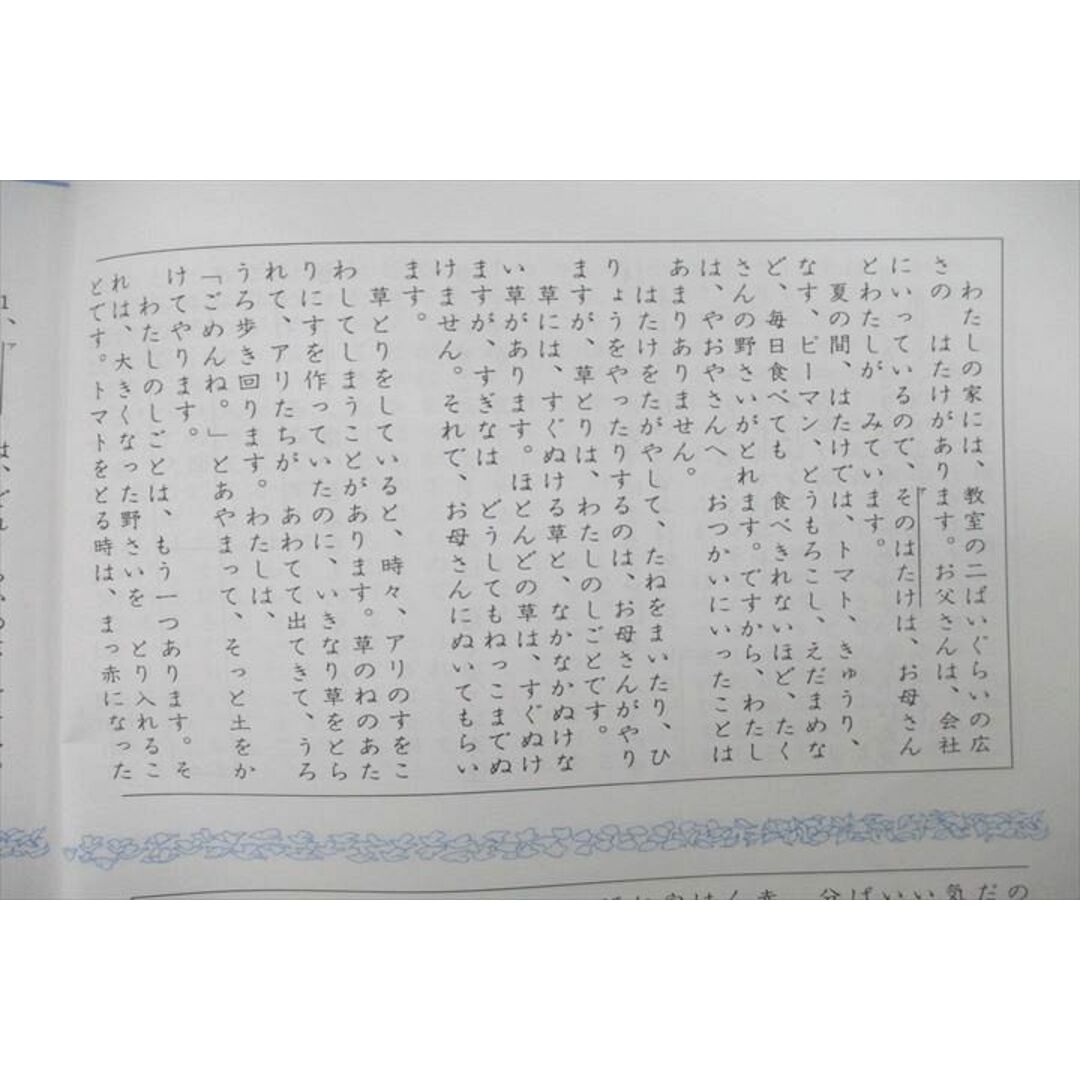 わたしの家には、教室の二ばいぐらいの広
さの　はたけがあります。お父さんは、会社
にいっているので、そのはたけは、お母さん
とわたしが　みています。
夏の間、はたけでは、トマト、きゅうり、
なす、ピーマン、とうもろこし、えだまめな
ど、毎日食べても　食べきれないほど、たく
さんの野さいがとれます。ですから、わたし
は、やおやさんへ　おつかいにいったことは
あまりありません。
はたけをたがやして、たねをまいたり、ひ
りょうをやったりするのは、お母さんがやり
ますが、草とりは、わたしのしごとです。
草には、すぐぬける草と、なかなかぬけな
い草があります。ほとんどの草は、すぐぬけ
ますが、すぎなは　どうしてもねっこまでぬ
けません。それで、お母さんにぬいてもらい
ます。
草とりをしていると、時々、アリのすをこ
わしてしまうことがあります。草のねのあた
りにすを作っていたのに、いきなり草をとら
れて、アリたちが　あわてて出てきて、うろ
うろ歩き回ります。わたしは、
「ごめんね。」とあやまって、そっと土をか
けてやります。
わたしのしごとは、もう一つあります。そ
れは、大きくなった野さいを　とり入れるこ
とです。トマトをとる時は、まっ赤になった